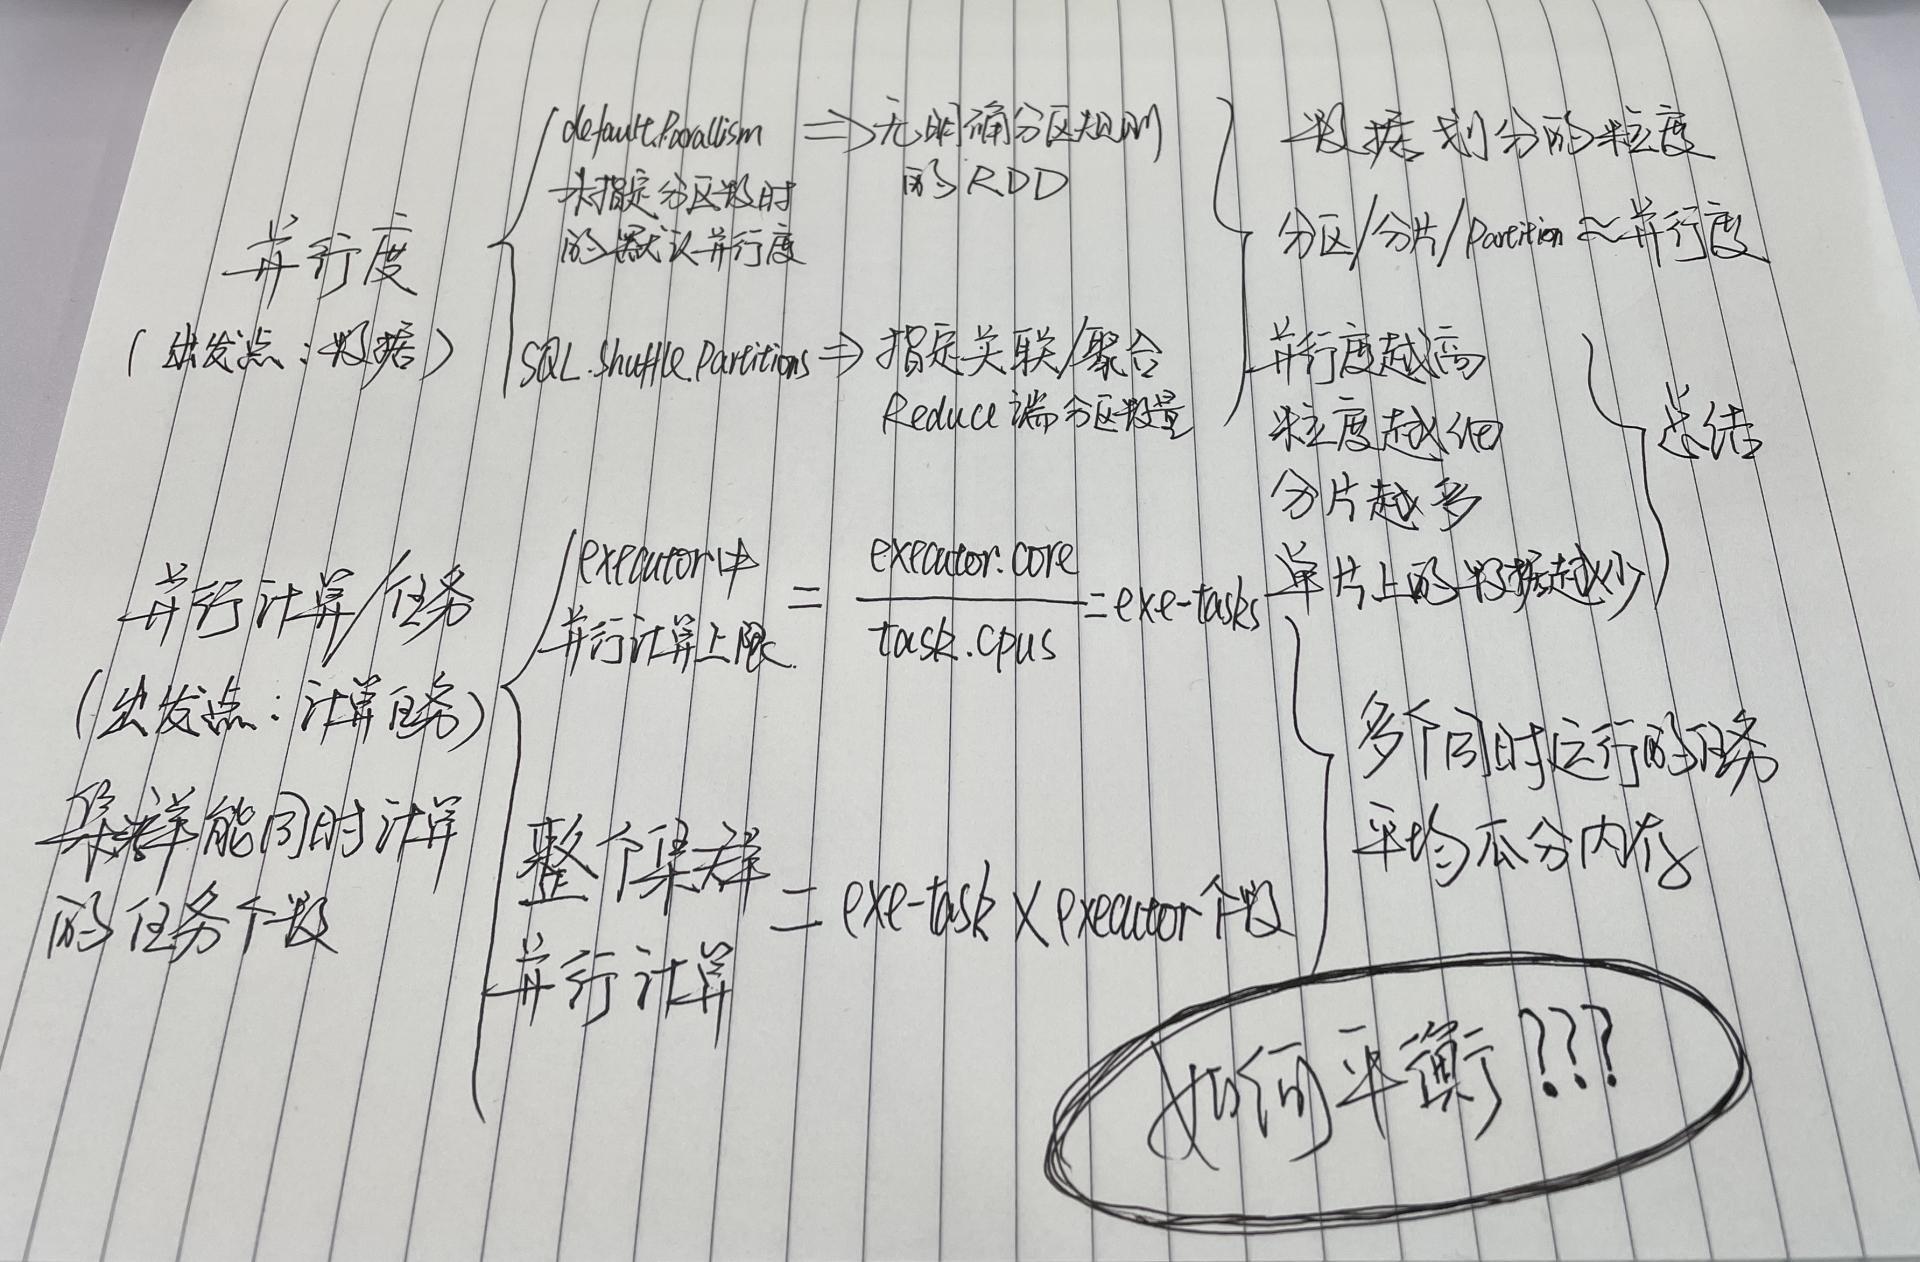 并行度
(出发点:数据)
default.Parallism
未指定分区数时
的默认并行度
⇒无明确分区规则
的RDD
SQL.Shuffle.Partitions⇒指定关联/聚合
Reduce端分区数量
数据划分的粒度
分区/分片/Partition≈并行度
并行度越高
粒度越细
分片越多
单片上的数据越少
总结
并行计算/任务
(出发点:计算任务)
集群能同时计算
的任务个数
executor中
并行计算上限
=
executor.core
task.cpus
=exe-tasks
整个集群
并行计算
=exe-task×executor个数
多个同时运行的任务
平均瓜分内存
如何平衡???